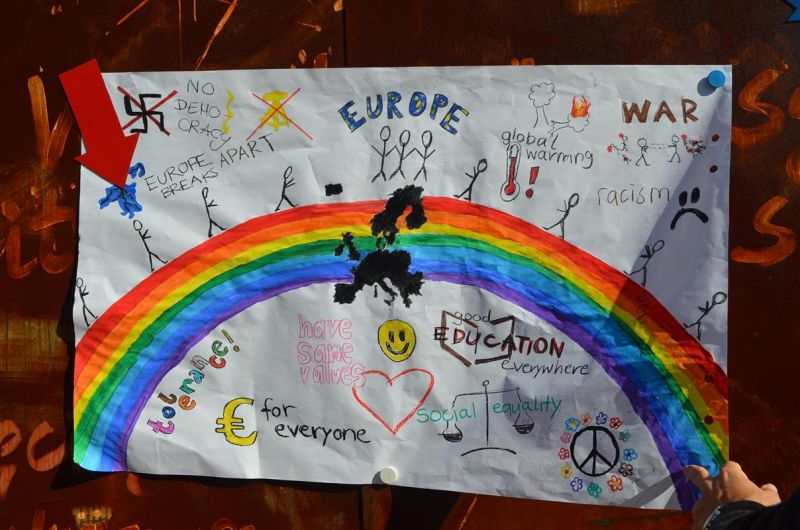 NO
DEMO
CRACY
EUROPE
BREAKS APART
EUROPE
global
warming
!
WAR
racism
tolerance!
have
same
values
€ for
everyone
good
EDUCATION
everywhere
social equality